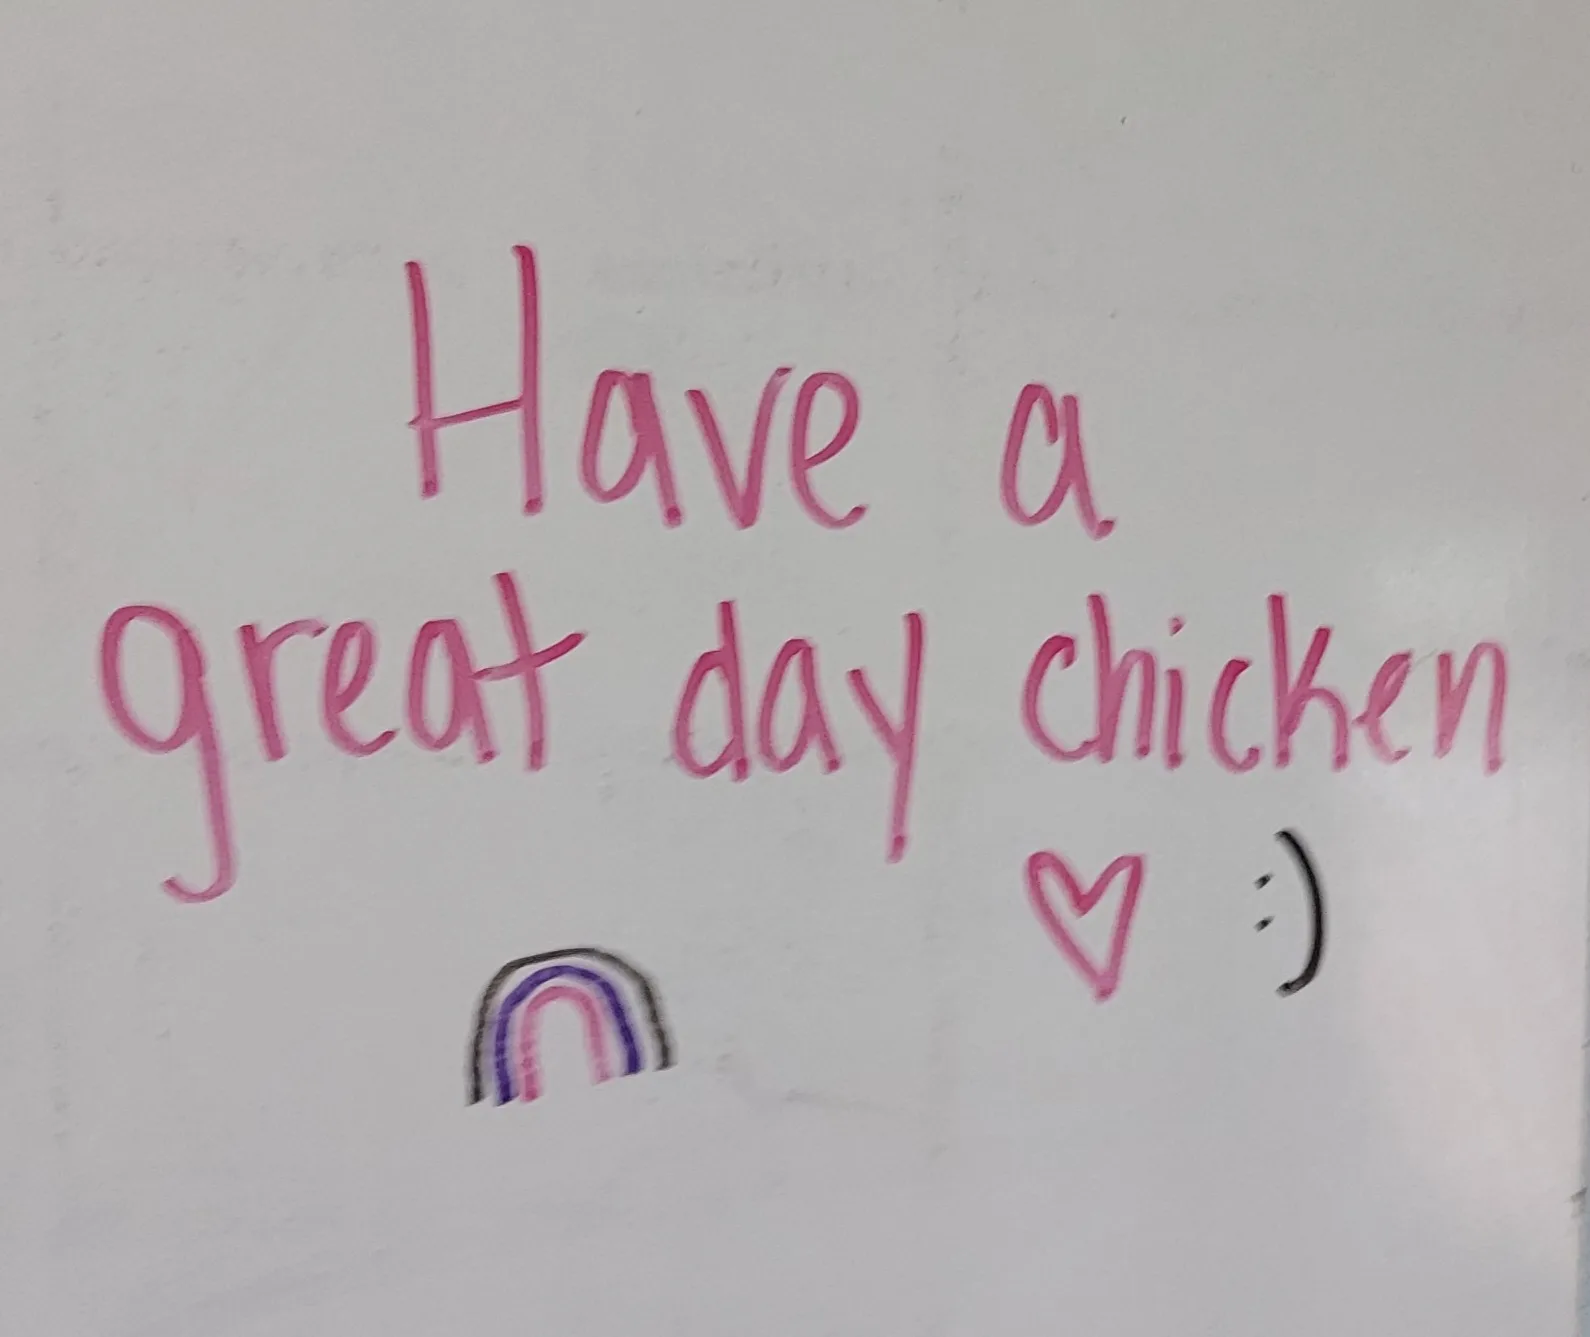 Have a
great day chicken
♡ :)